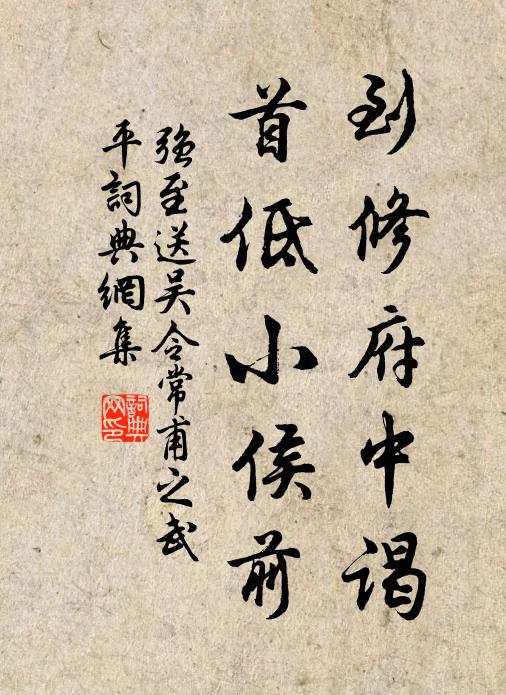 到修府中謁
首低小侯前
強至送吳令常甫之武
平詞典網集
詞典網印